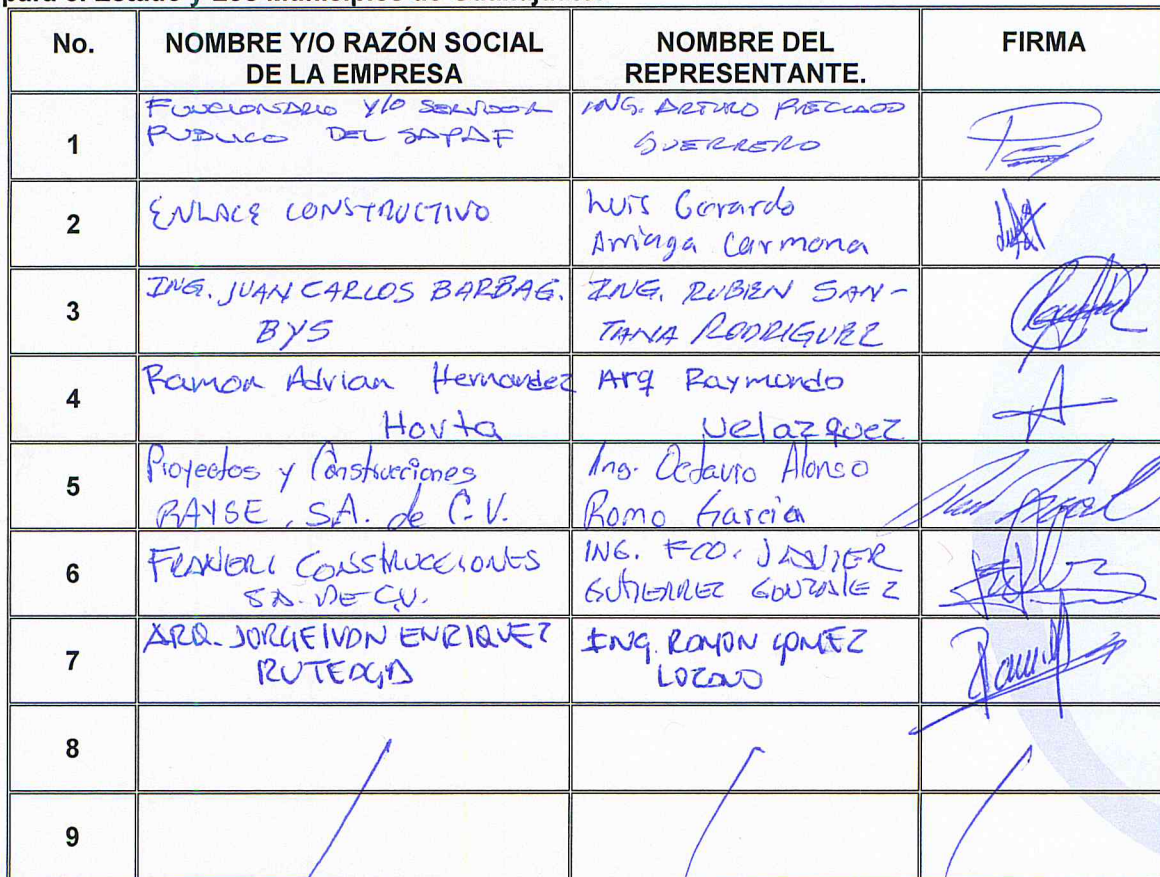 para el Estado y Los Municipios de
No.
NOMBRE Y/O RAZÓN SOCIAL
DE LA EMPRESA
NOMBRE DEL
REPRESENTANTE.
FIRMA
1
FUNCIONARIO Y/O SERVIDOR
PUBLICO DEL SAPAF
ING. ARTURO PRECIADO
GUERRERO
2
ENLACE CONSTRUCTIVO
Luis Gerardo
Arriaga Carmona
3
ING. JUAN CARLOS BARBA G.
BYS
ING. RUBEN SAN-
TANA RODRIGUEZ
4
Ramon Adrian Hernandez
Horta
Arq Raymundo
Velazquez
5
Proyectos y Construcciones
RAYSE, S.A. de C.V.
Ing. Octavio Alonso
Romo Garcia
6
CONSTRUCCIONES
S.A. DE C.V.
ING. FCO. JAVIER
GUTIERREZ GONZALEZ
7
ARQ. JORGE IVON ENRIQUEZ
ING. RAMON GOMEZ
LOZANO
8
9